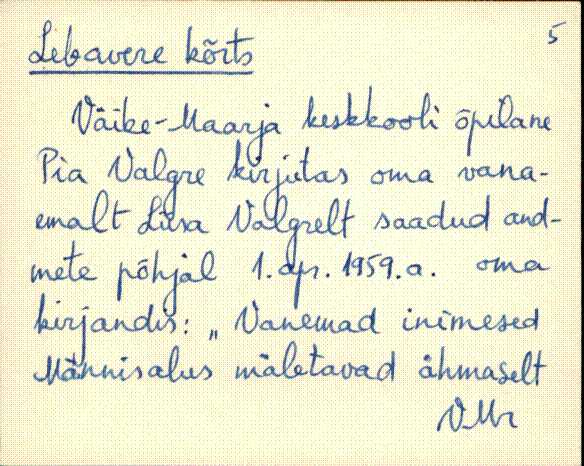 Lebavere kõrts
5
Väike-Maarja keskkooli õpilane
Pia Valgre kirjutas oma vana-
emalt Liisa Valgrelt saadud and-
mete põhjal 1. apr. 1959. a. oma
kirjandis: „Vanemad inimesed
Männisalus mäletavad ähmaselt
VMr